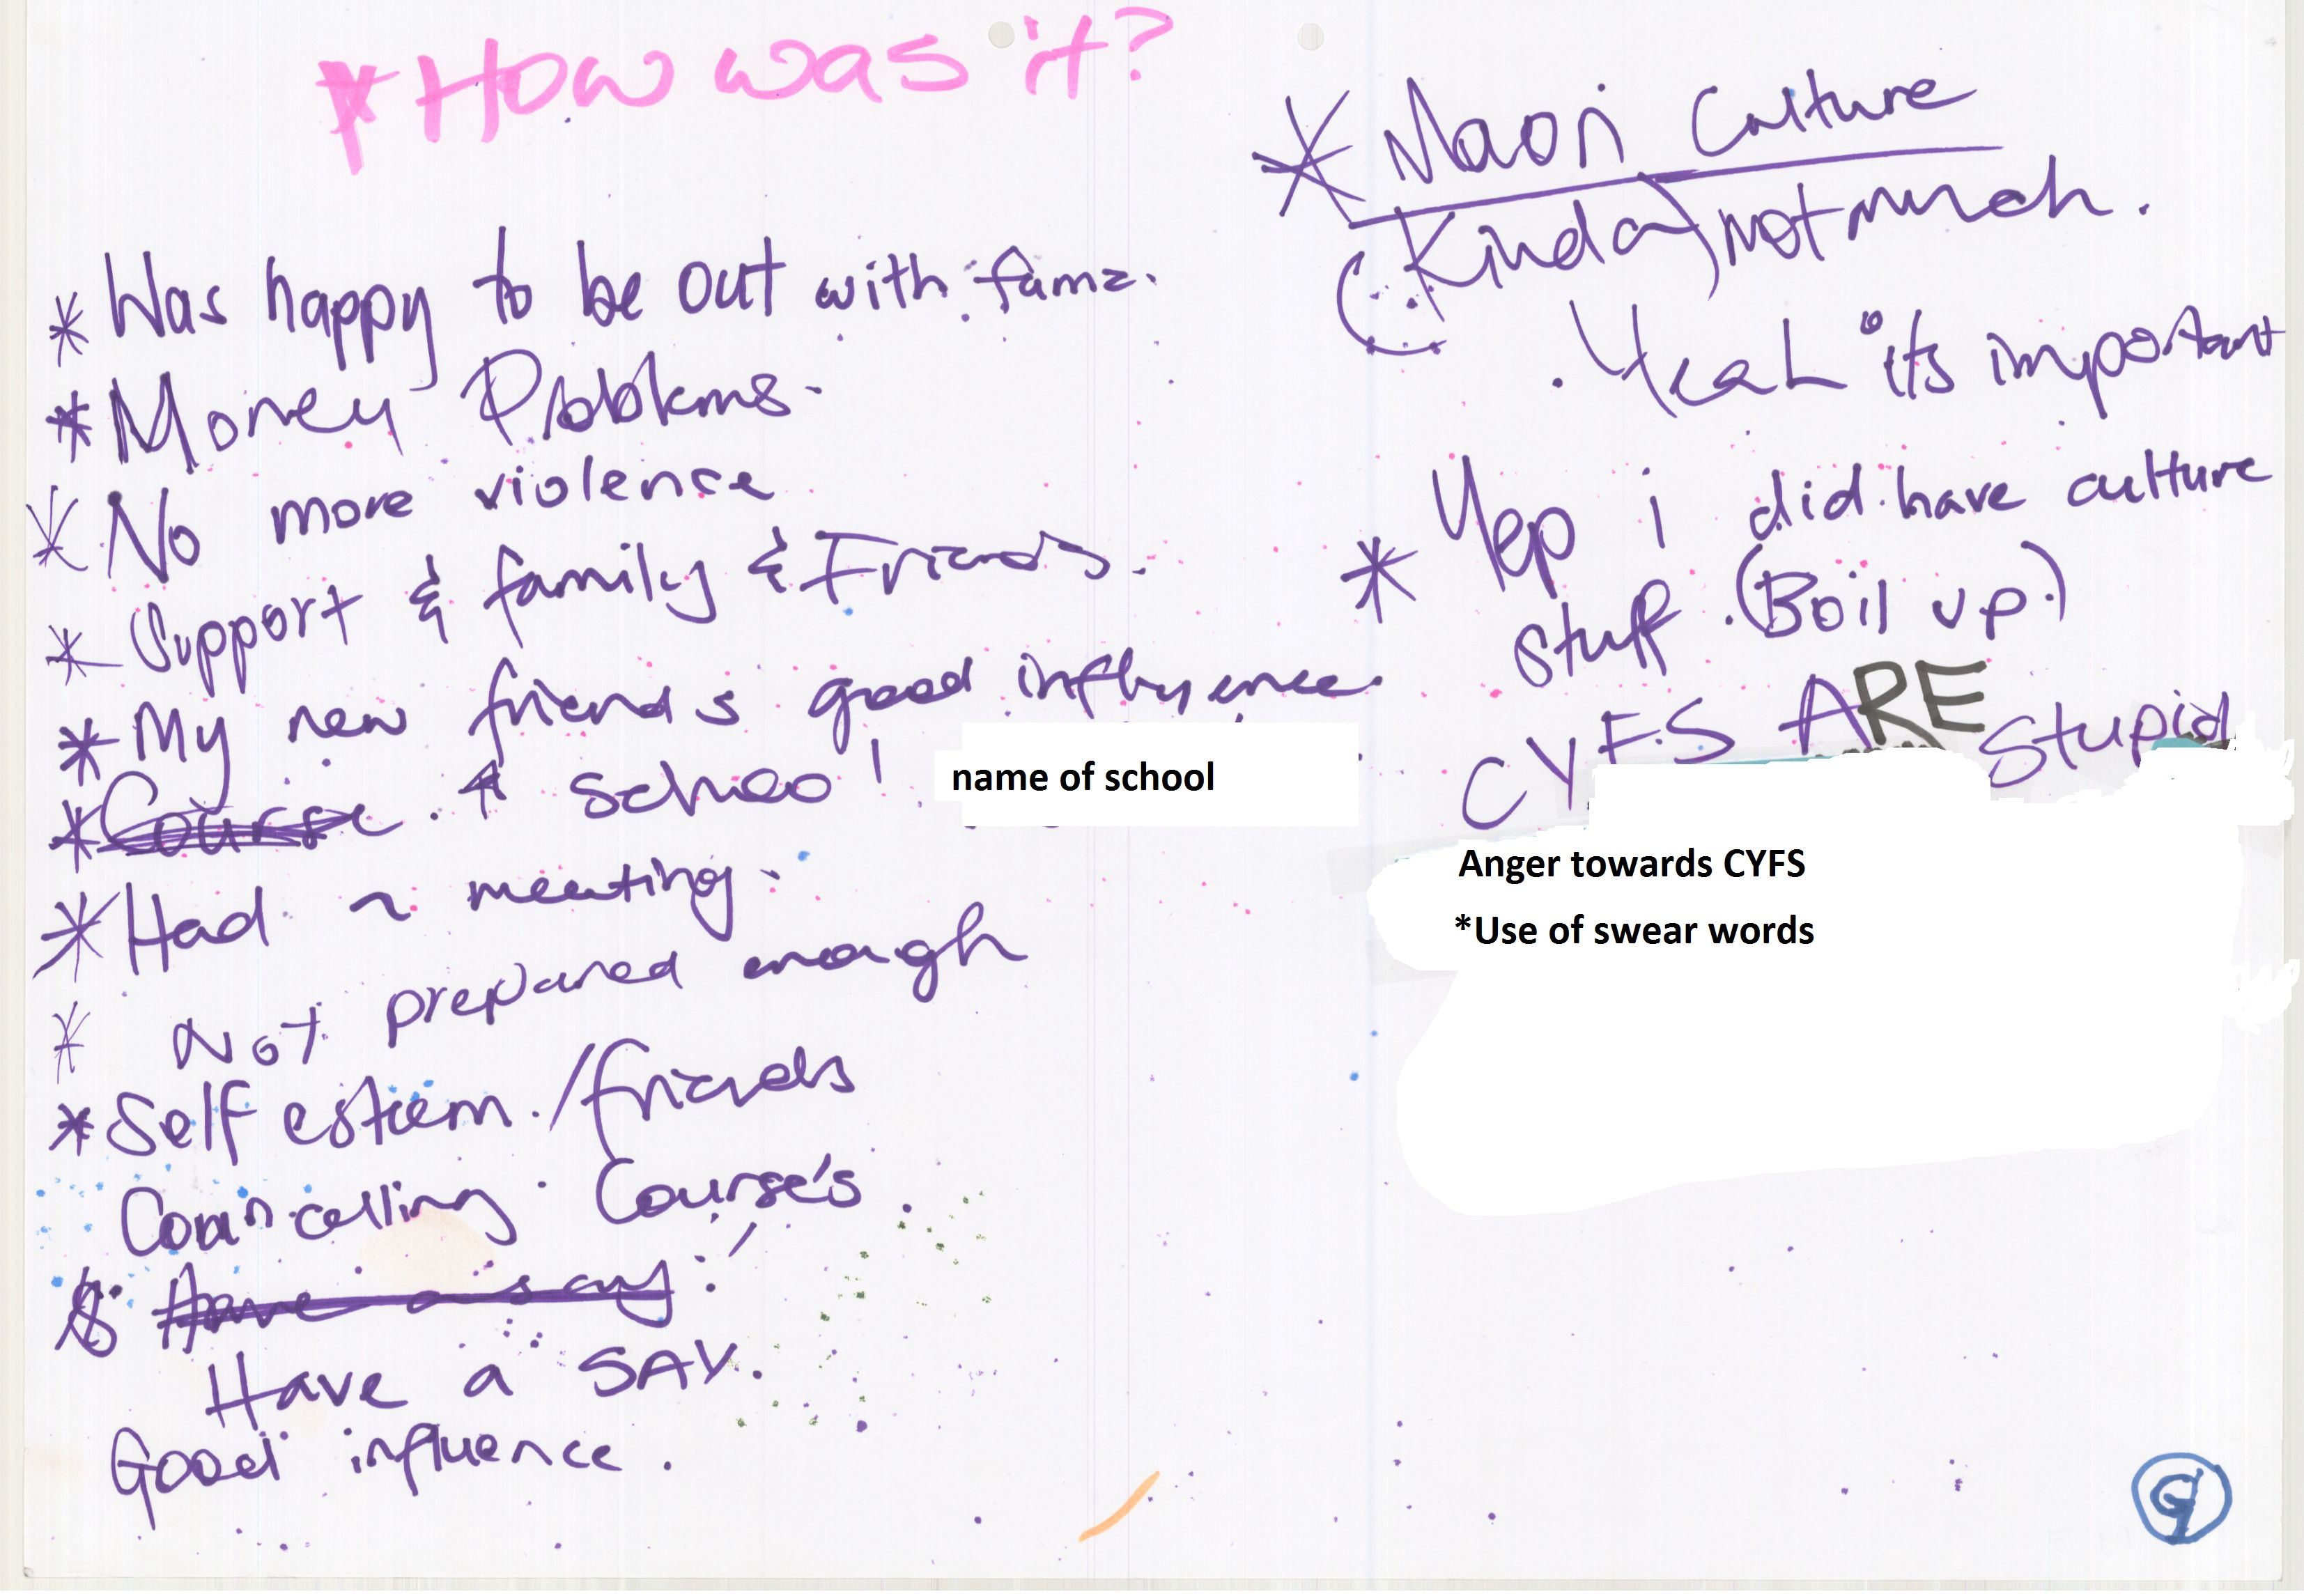 * How was it?
* Was happy to be out with famz.
* Money Problems.
* No more violence
* Support & family & Friends.
* My new friends good influence.
* Course. & school name of school
* Had a meeting.
* Not prepared enough
* Self estiem./friends
Councelling. Course's.
Have a say.
Have a SAY.
Good influence.
* Maori Culture
(Kinda) not much.
. Yeah its important
* Yep i did have culture
stuff. (Boil up.)
CYFS ARE stupid
Anger towards CYFS
*Use of swear words